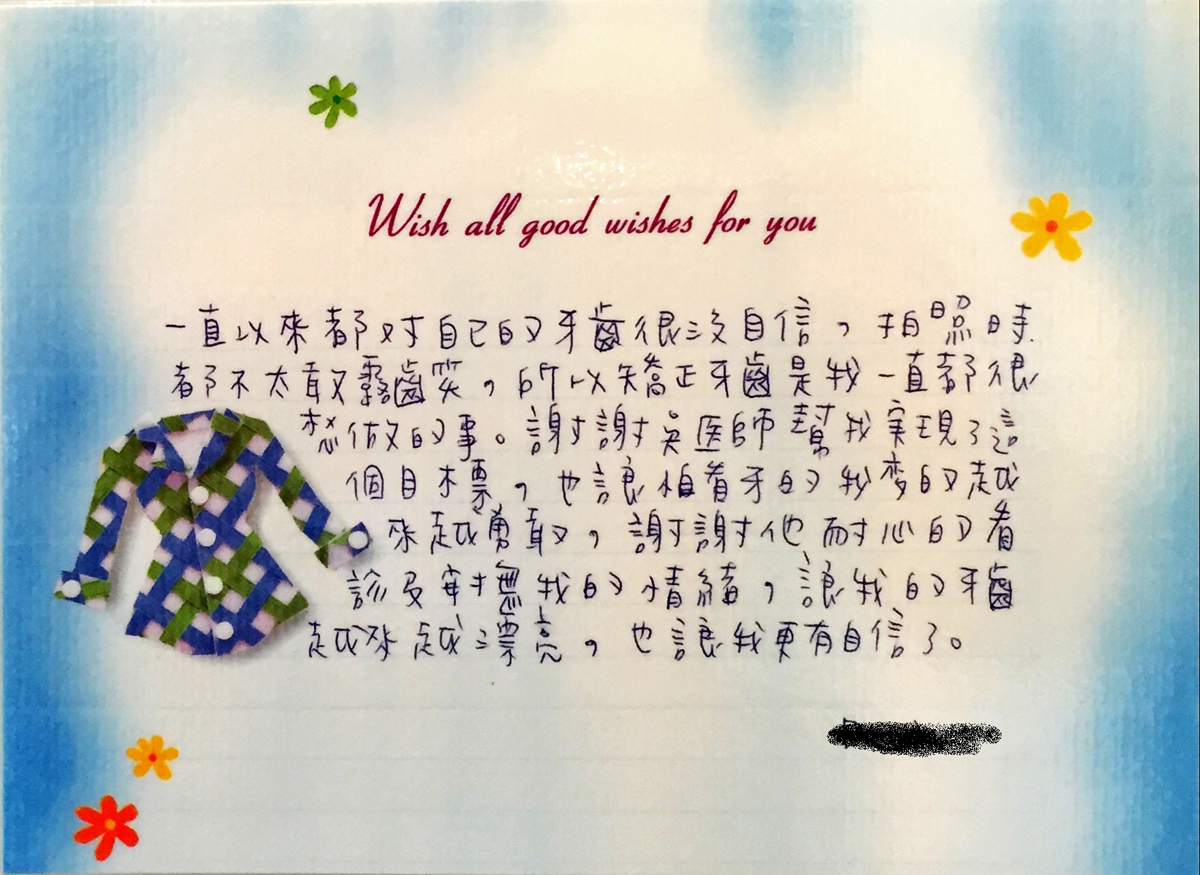 Wish all good wishes for you
一直以來都对自己的牙齒很沒自信，拍照時
都不太敢露齒笑，所以矯正牙齒是我一直都很
想做的事。謝謝吳医師幫我実現了這
個目標，也讓怕看牙的我变的越
來越勇敢，謝謝他耐心的看
診及安撫我的情緒，讓我的牙齒
越來越漂亮，也讓我更有自信了。